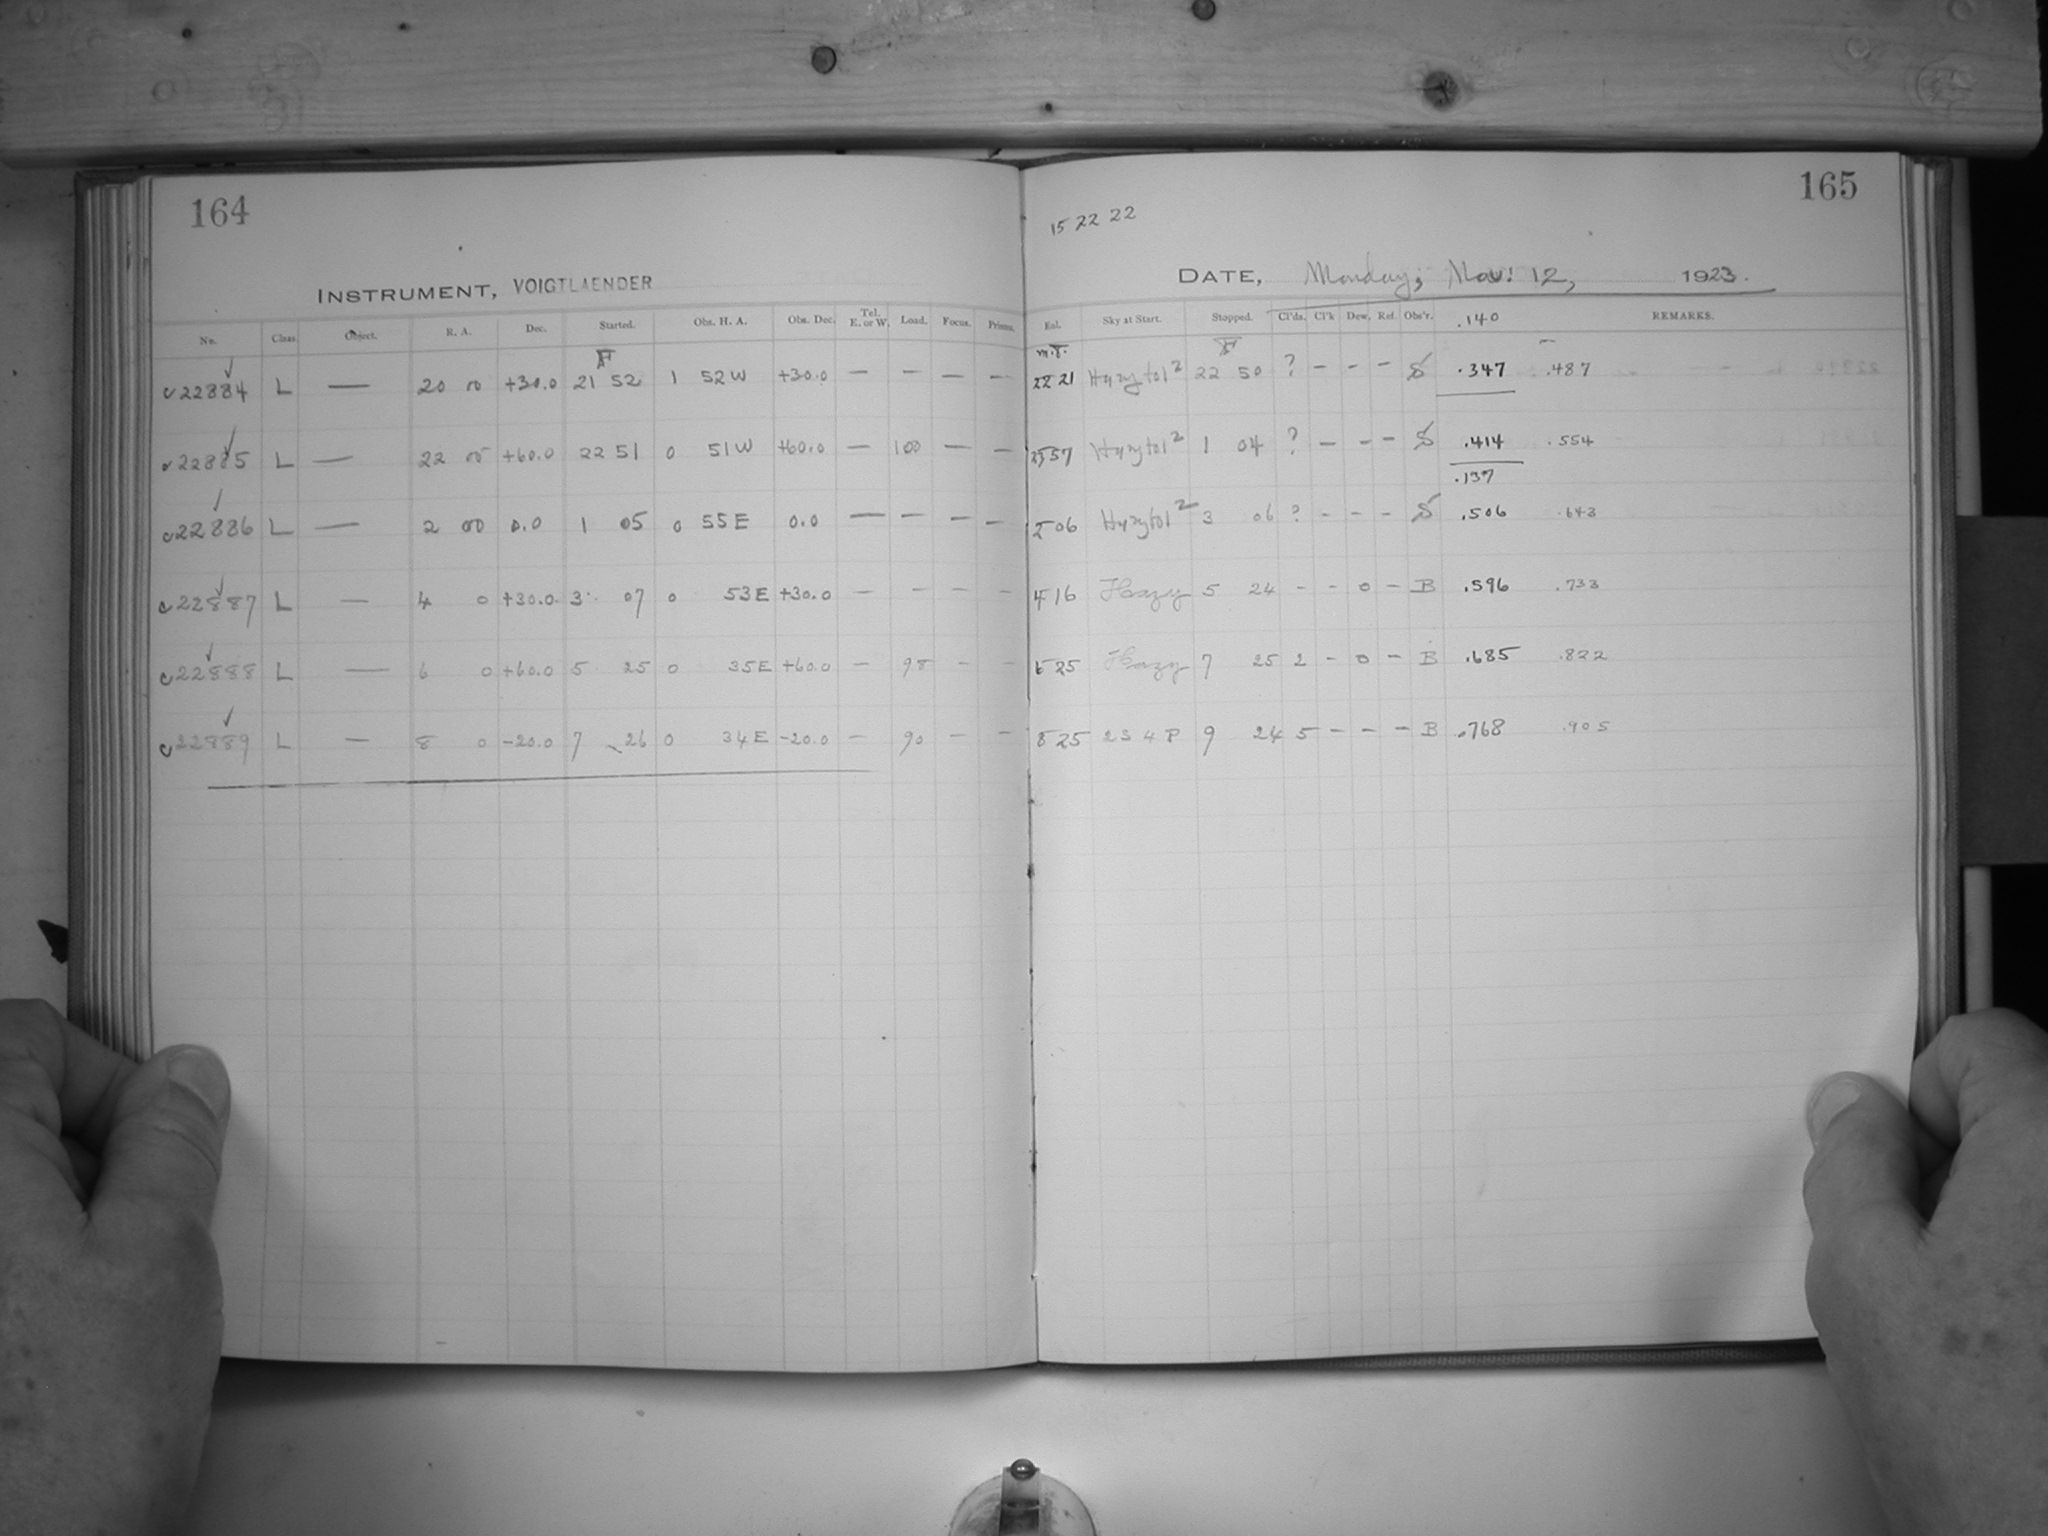 164
165
15 22 22
INSTRUMENT, VOIGTLAENDER
DATE, Monday, Nov. 12, 1923.
No. Class. Object. R. A. Dec. Started. Obs. H. A. Obs. Dec. Tel. E. or W. Load. Focus. Prisms.
Exl. Sky at Start. Stopped. Cl'ds. Cl'k Dew. Ref. Obs'r. .140 REMARKS.
c 22884 L — 20 00 +30.0 21 52 1 52 W +30.0 — — — —
m.t. 22 21 22 50 ? - - - S .347 .487
22885 L — 22 00 +60.0 22 51 0 51 W +60.0 — 100 — —
23 57 1 04 ? - - - S .414 .554
.137
c 22886 L — 2 00 0.0 1 05 0 55 E 0.0 — — — —
2 06 3 06 ? - - - S .506 .643
c 22887 L — 4 0 +30.0 3 07 0 53 E +30.0 — - - -
4 16 Hazy 5 24 - - 0 - B .596 .733
c 22888 L — 6 0 +60.0 5 25 0 35 E +60.0 — 98 - -
6 25 Hazy 7 25 2 - 0 - B .685 .822
c 22889 L — 8 0 -20.0 7 26 0 34 E -20.0 — 90 - -
8 25 2 S 4 P 9 24 5 - - - B .768 .905